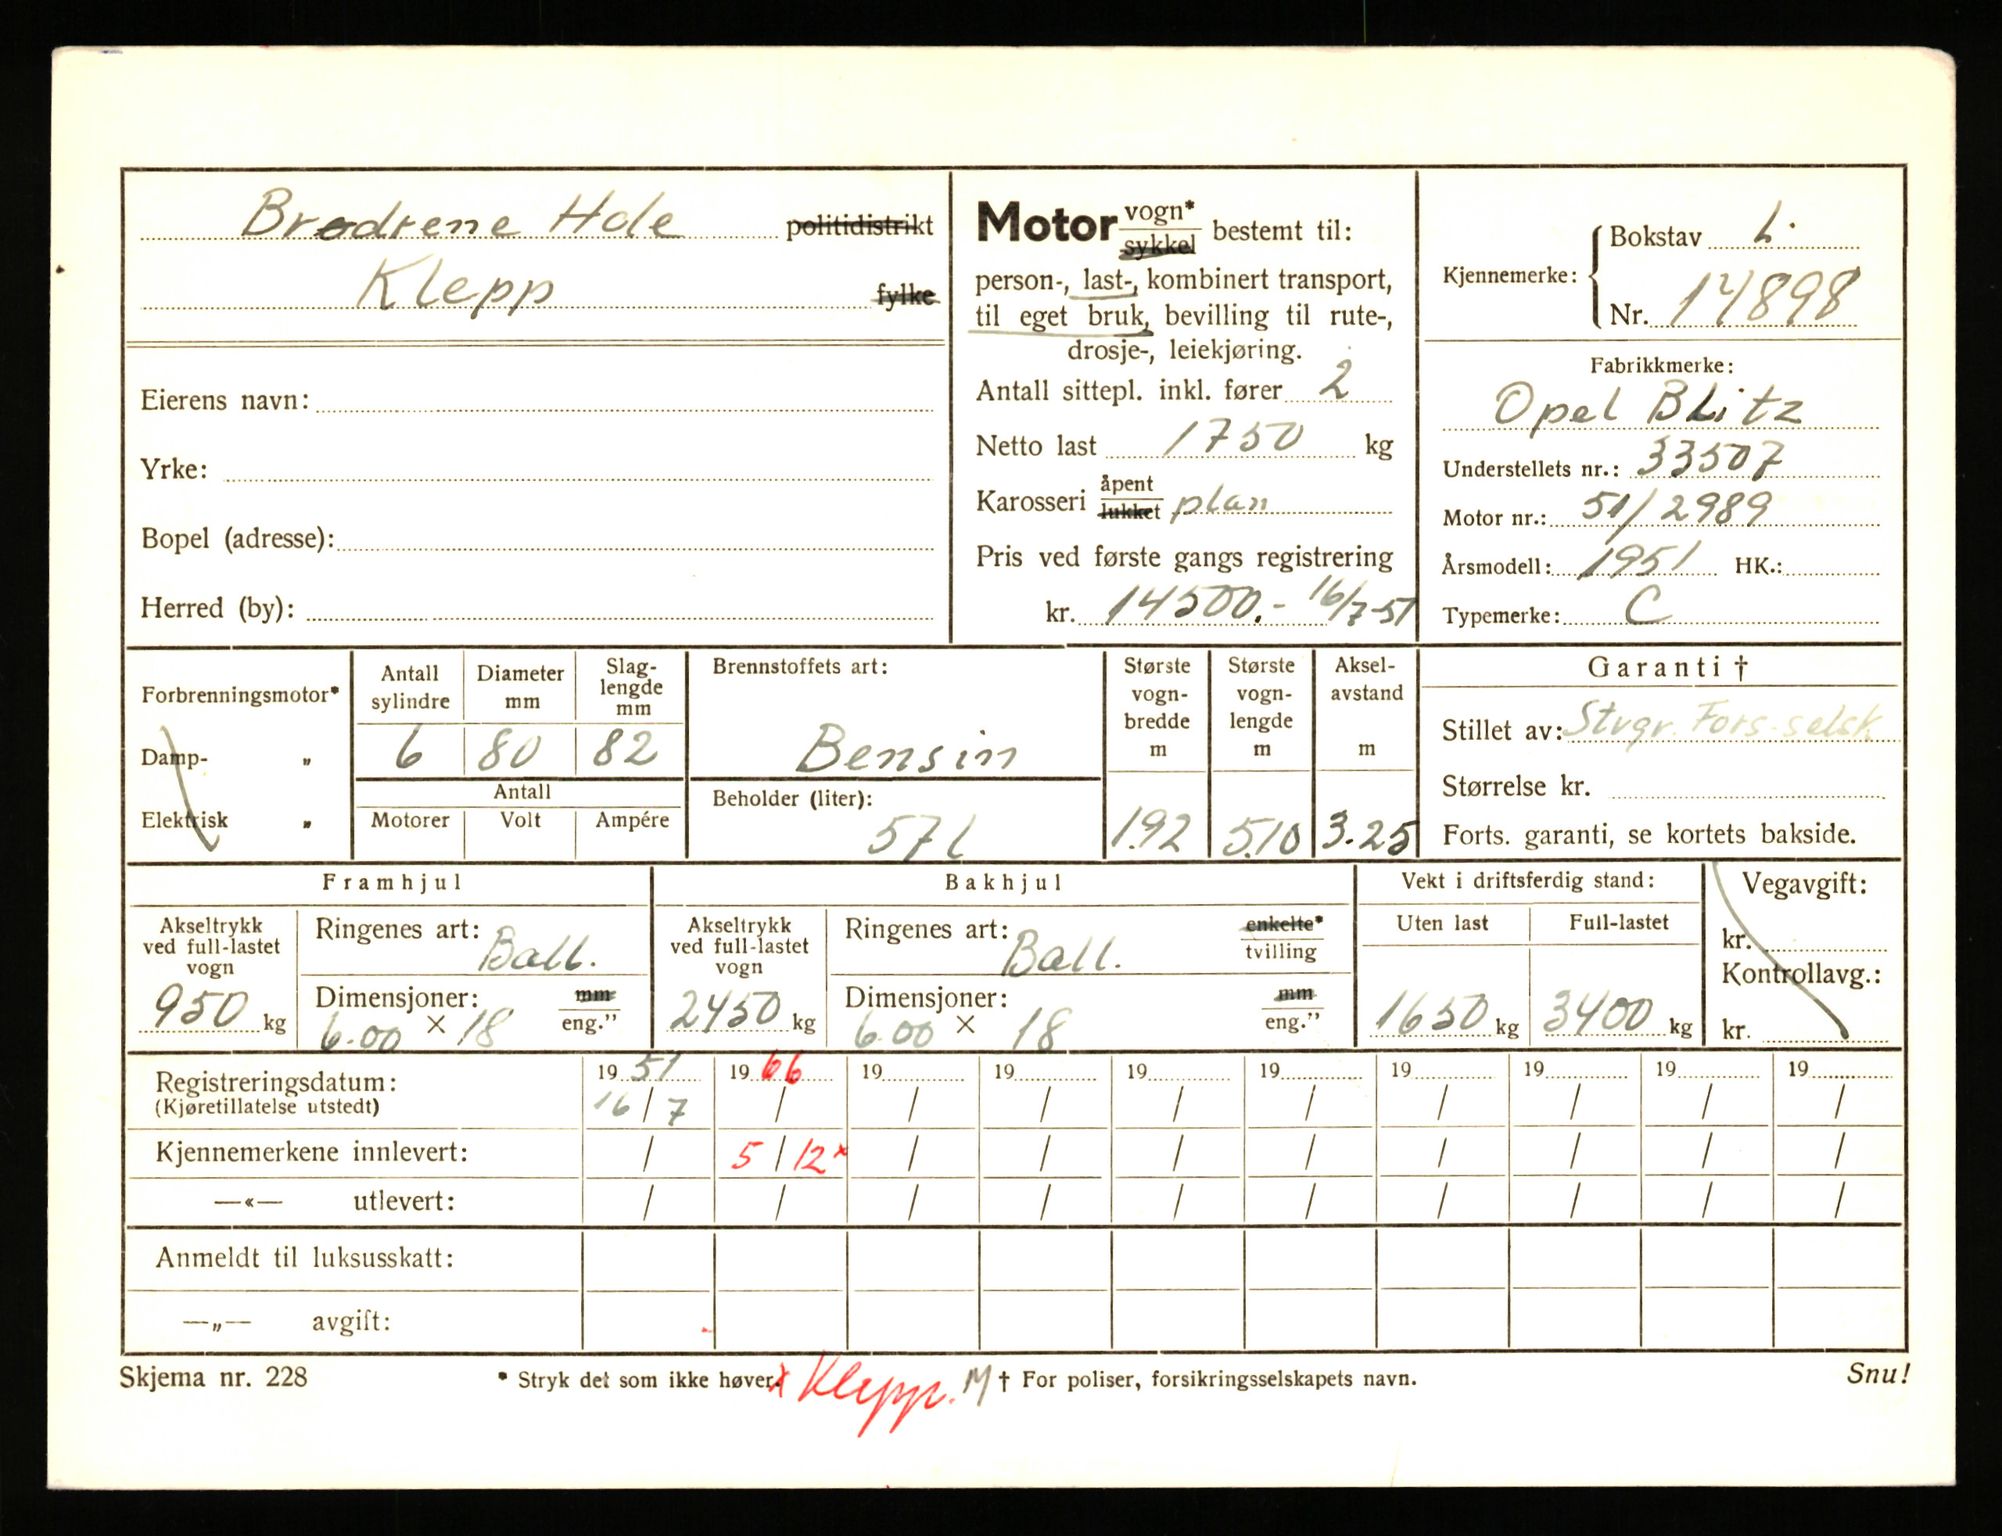 Brødrene Hole politidistrikt
Klepp fylke
Eierens navn:
Yrke:
Bopel (adresse):
Herred (by):
Motor vogn* sykkel bestemt til:
person-, last-, kombinert transport,
til eget bruk, bevilling til rute-,
drosje-, leiekjøring.
Antall sittepl. inkl. fører 2
Netto last 1750 kg
Karosseri åpent lukket plan
Pris ved første gangs registrering
kr. 14500.- 16/7-51
Kjennemerke: Bokstav L.
Nr. 14898
Fabrikkmerke:
Opel Blitz
Understellets nr.: 33507
Motor nr.: 51/2989
Årsmodell: 1951 HK.:
Typemerke: C
Forbrenningsmotor*
Damp- „
Elektrisk „
Antall sylindre
Diameter mm
Slag-lengde mm
6 80 82
Antall
Motorer Volt Ampére
Brennstoffets art:
Bensin
Beholder (liter):
57 l
Største vogn-bredde m
1.92
Største vogn-lengde m
5.10
Aksel-avstand m
3.25
Garanti †
Stillet av: Stvgr. Fors.selsk
Størrelse kr.
Forts. garanti, se kortets bakside.
Framhjul
Akseltrykk ved full-lastet vogn
950 kg
Ringenes art: Ball.
Dimensjoner: mm eng.”
6.00 × 18
Bakhjul
Akseltrykk ved full-lastet vogn
2450 kg
Ringenes art: Ball. enkelte* tvilling
Dimensjoner: mm eng.”
6.00 × 18
Vekt i driftsferdig stand:
Uten last Full-lastet
1650 kg 3400 kg
Vegavgift:
kr.
Kontrollavg.:
kr.
Registreringsdatum: 1951 1966 19 19 19 19 19 19 19 19
(Kjøretillatelse utstedt) 16/7 / / / / / / / / /
Kjennemerkene innlevert: / 5/12x / / / / / / / /
—«— utlevert: / / / / / / / / / /
Anmeldt til luksusskatt:
—„— avgift:
Skjema nr. 228 * Stryk det som ikke høver. x Klepp. M † For poliser, forsikringsselskapets navn. Snu!